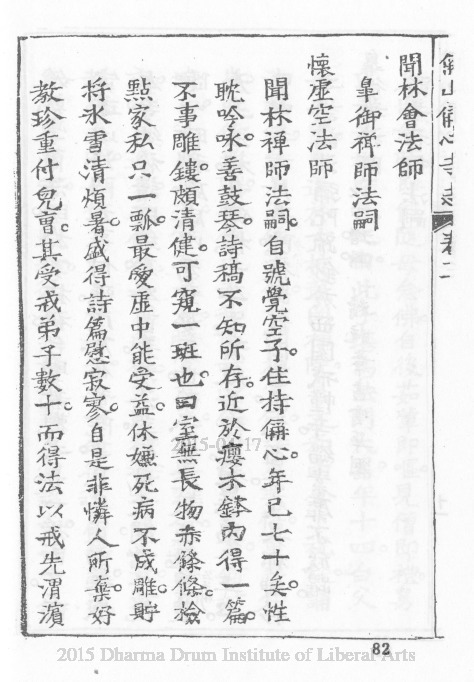 聞林會法師
皐御禪師法嗣
懷虛空法師
聞林禪師法嗣。自號覺空子。住持偁心。年已七十矣。性
耽吟咏。善鼓琴。詩稿不知所存。近於癭木鉢內得一篇。
不事雕鏤。頗清健。可窺一斑也。曰室無長物赤條條。檢
點家私只一瓢。最愛虛中能受益。休嫌死病不成雕。貯
將氷雪清煩暑。盛得詩篇慰寂寥。自是非憐人所棄。好
教珍重付兒曹。其受戒弟子數十。而得法以戒先渭濱
82
2015 Dharma Drum Institute of Liberal Arts